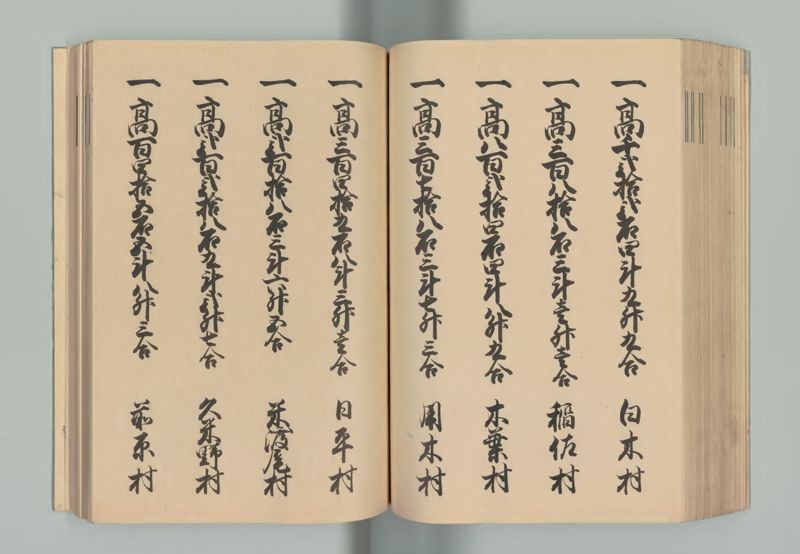 一高千弐拾弐石四斗九升九合 白木村
一高三百八拾八石三斗壱升壱合 稲佐村
一高八百弐拾四石四斗八升九合 木葉村
一高三百七拾八石三斗七升三合 木村
一高三百四拾九石八斗三升壱合 日平村
一高弐百拾八石三斗六升五合 米渡尾村
一高弐百弐拾八石九斗弐升七合 久米野村
一高百四拾五石五斗八升三合 原村